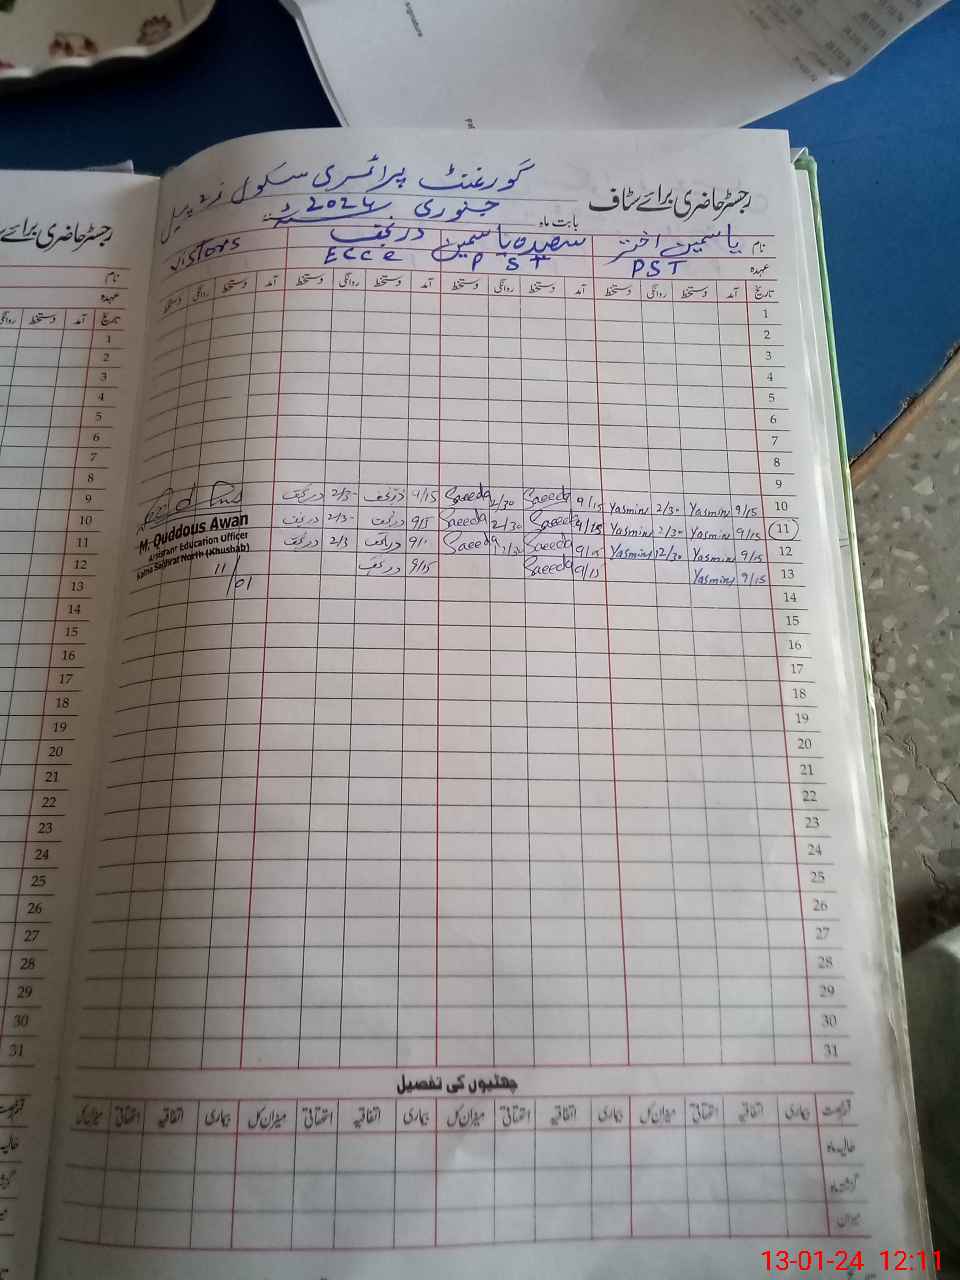 signature
رجسٹر حاضری برائے سٹاف
گورنمنٹ پرائمری سکول
بابت ماہ جنوری 2024ء
نام یاسمین اختر سعیدہ یاسمین در نجف Visitors
عہدہ PST PST Ecce
تاریخ آمد دستخط روانگی دستخط آمد دستخط روانگی دستخط آمد دستخط روانگی دستخط آمد دستخط روانگی دستخط
1
2
3
4
5
6
7
8
9
10 9/15 Yasmin 2/30 Yasmin 9/15 Saeeda 2/30 Saeeda 9/15 در نجف 2/3 در نجف
11 9/15 Yasmin 2/30 Yasmin 9/15 Saeeda 2/30 Saeeda 9/15 در نجف 2/3 در نجف
12 9/15 Yasmin 12/30 Yasmin 9/15 Saeeda 12/30 Saeeda 9/1 در نجف 2/3 در نجف
13 9/15 Yasmin 9/15 Saeeda 9/15 در نجف
M. Quddous Awan
Assistant Education Officer
North (Khushab)
11/01
14
15
16
17
18
19
20
21
22
23
24
25
26
27
28
29
30
31
چھٹیوں کی تفصیل
قسم رخصت بیماری اتفاقیہ استحقاقی میزان کل بیماری اتفاقیہ استحقاقی میزان کل بیماری اتفاقیہ استحقاقی میزان کل بیماری اتفاقیہ استحقاقی میزان کل
حالیہ ماہ
گزشتہ ماہ
میزان
رجسٹر حاضری برائے
نام
عہدہ
تاریخ آمد دستخط روانگی
1
2
3
4
5
6
7
8
9
10
11
12
13
14
15
16
17
18
19
20
21
22
23
24
25
26
27
28
29
30
31
13-01-24 12:11